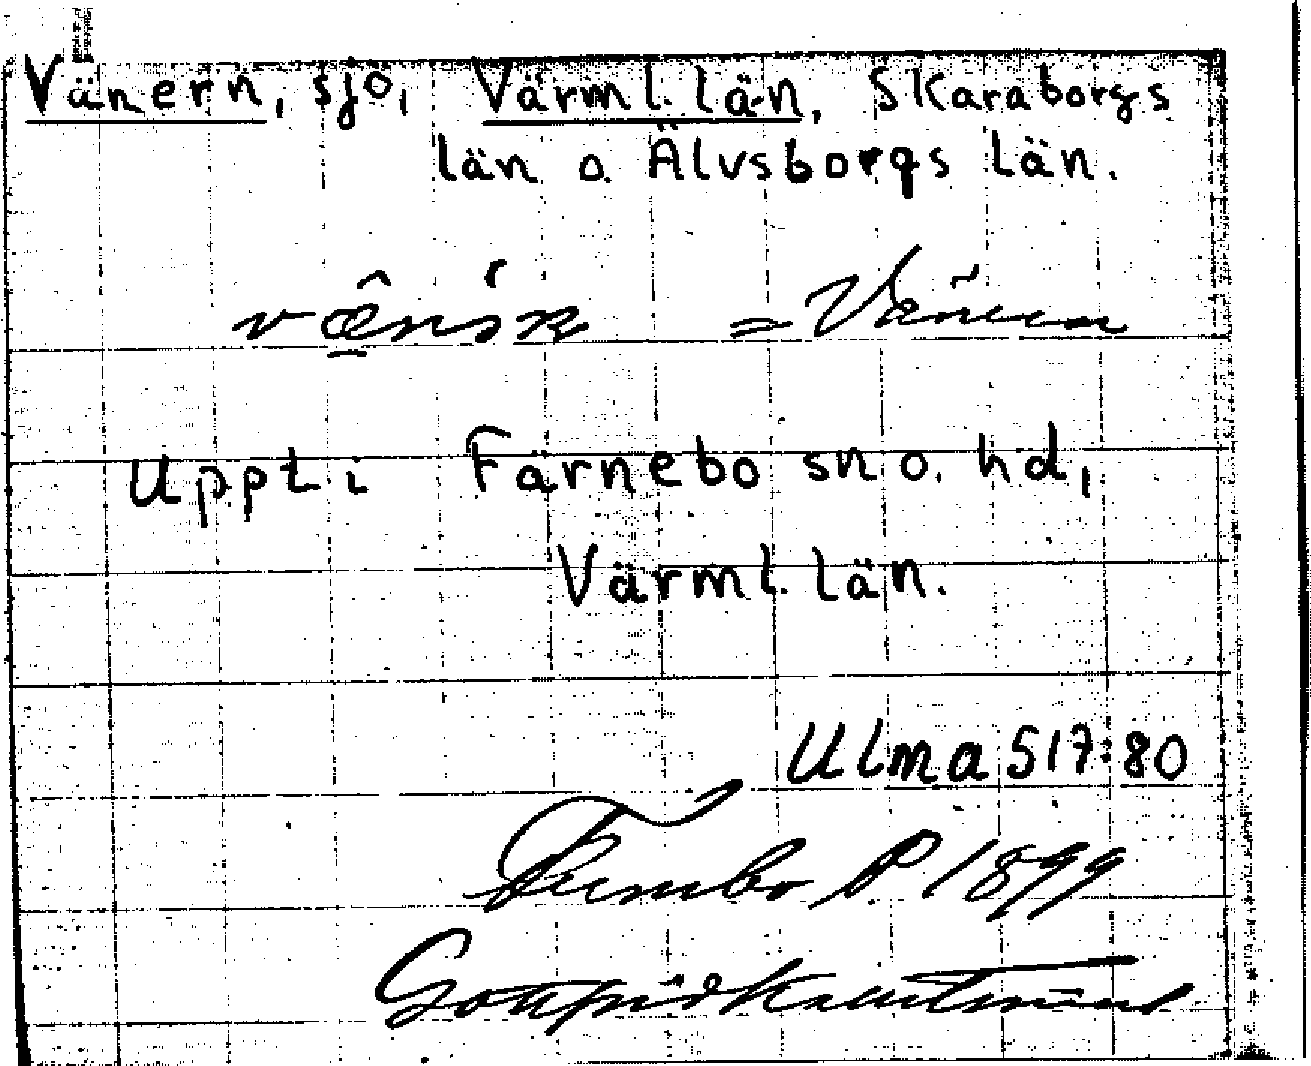 Vänern, sjö, Värml. län, Skaraborgs
län o Älvsborgs län.
= Vänern
Uppt. i Färnebo sn o. hd,
Värml. län.
Ulma 517:80
P 1899
Gottfrid Kallstenius